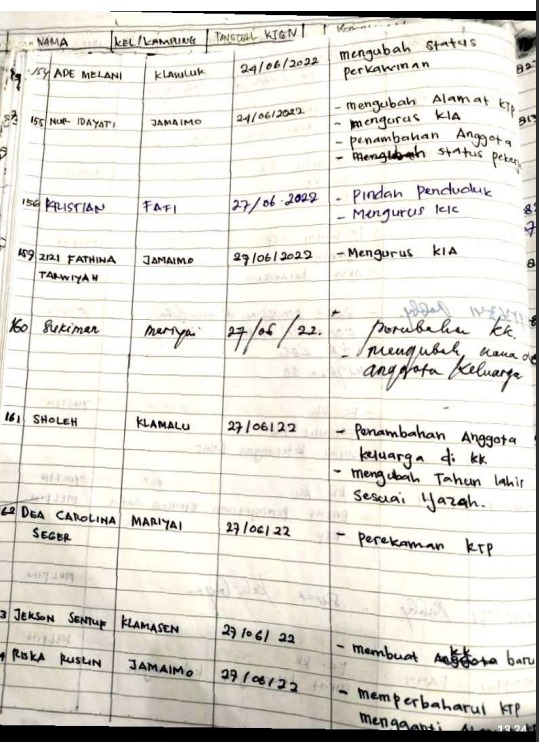 NAMA KEL/KAMPUNG TANGGAL KJGN
154 ADE MELANI Klasuluk 24/06/2022 mengubah status
perkawinan
155 NUR IDAYATI JAMAIMO 24/06/2022 - mengubah Alamat KTP
- mengurus KIA
- penambahan Anggota
- mengubah status peker
156 KRISTIAN FAFI 27/06.2022 - Pindah Penduduk
- Mengurus KK
159 ZIZI FATHINA JAMAIMO 27/06/2022 - Mengurus KIA
TAWIYAH
160 Sukiman mariyai 27/06/22. - perubahan KK.
- mengubah nama de
anggota keluarga
161 SHOLEH KLAMALU 27/06/22 - Penambahan Anggota
keluarga di KK
- mengubah Tahun lahir
sesuai Ijazah.
62 DEA CAROLINA MARIYAI 27/06/22 - perekaman KTP
SEGER
3 JEKSON SENTUF KLAMASEN 27/06/22 - membuat KK baru
4 RISKA RUSLIN JAMAIMO 27/06/22 - memperbaharui KTP
mengganti
13.24